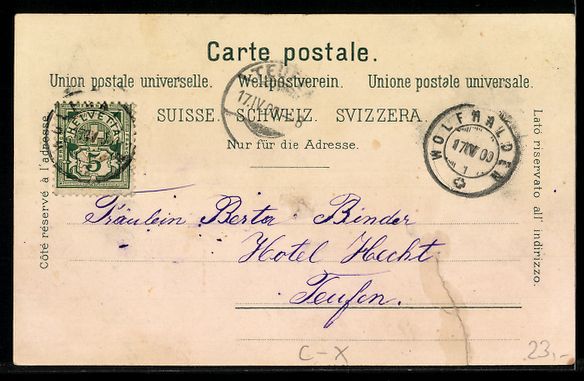 Carte postale.
Union postale universelle. Weltpostverein. Unione postale universale.
SUISSE. SCHWEIZ. SVIZZERA.
Nur für die Adresse.
Côté réservé à l'adresse.
Lato riservato all' indirizzo.
HELVETIA
5
17.IV
WOLFHALDEN
17 IV 00
1
Fräulein Berta Binder
Hotel Hecht
Teufen.
C-X
23.-